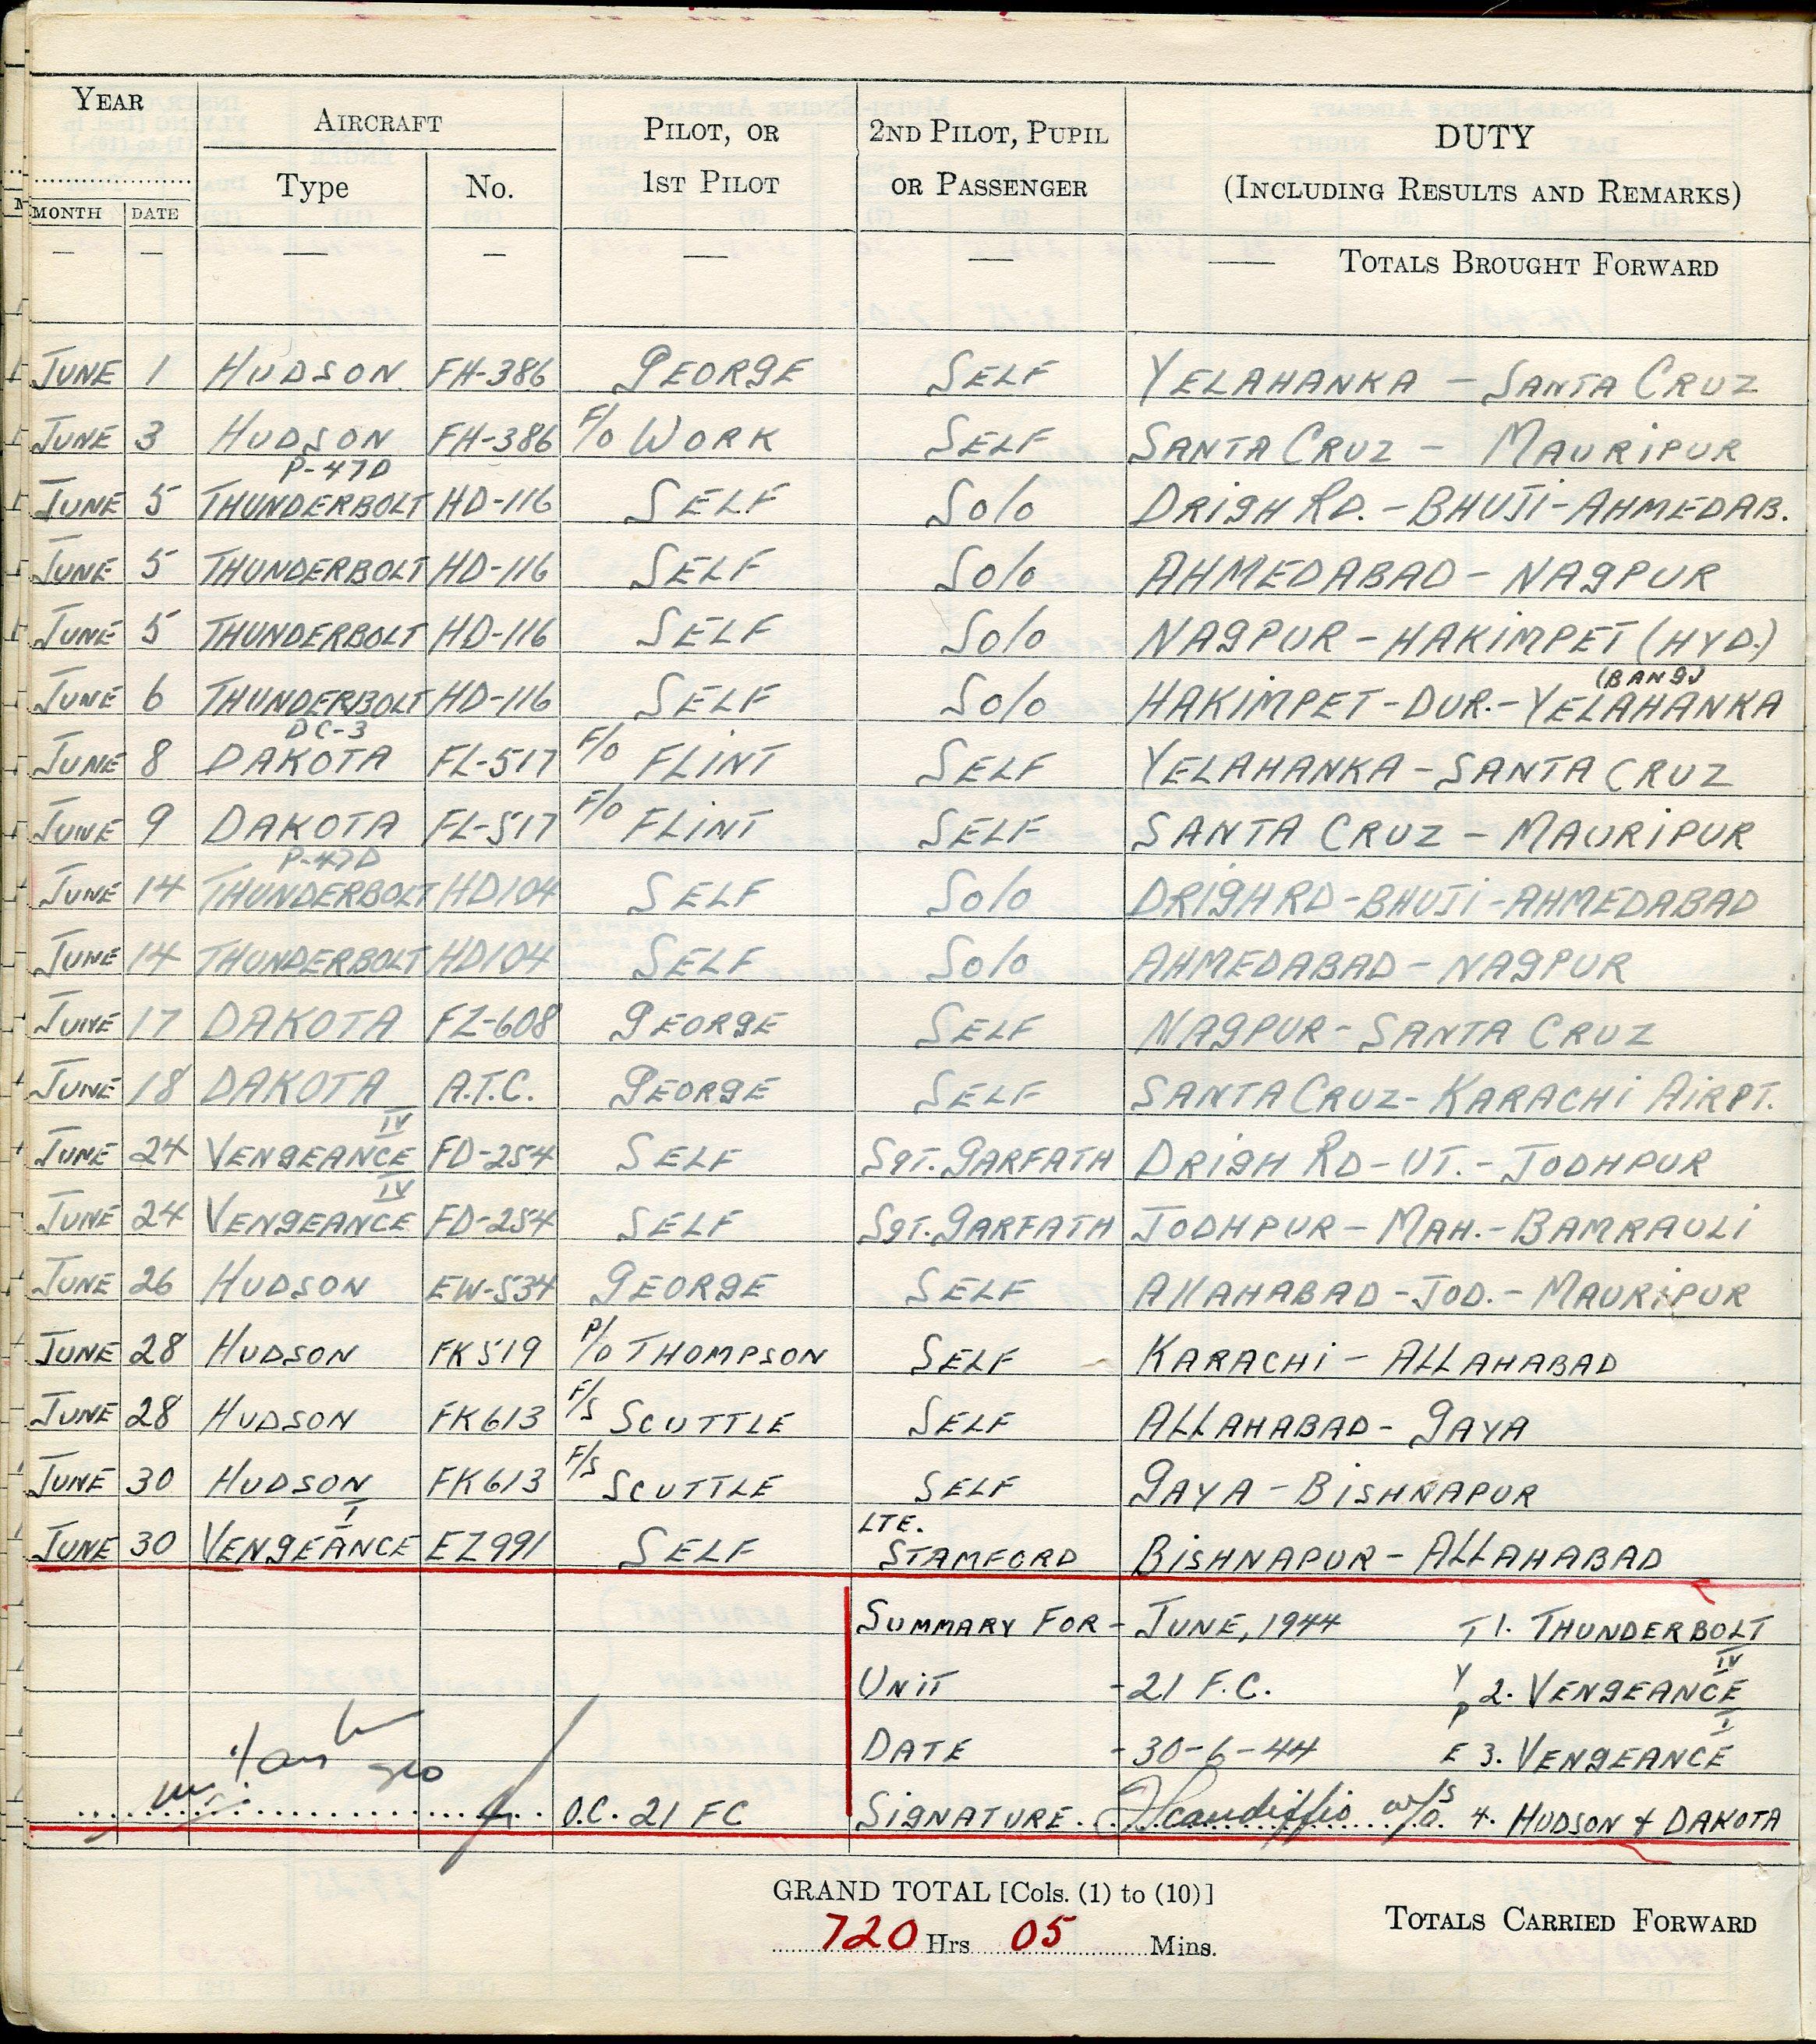 YEAR
AIRCRAFT
PILOT, OR
1ST PILOT
2ND PILOT, PUPIL
OR PASSENGER
DUTY
(INCLUDING RESULTS AND REMARKS)
MONTH DATE Type No.
— — — — — — — TOTALS BROUGHT FORWARD
JUNE 1 HUDSON FH-386 GEORGE SELF YELAHANKA - SANTA CRUZ
JUNE 3 HUDSON FH-386 F/O WORK SELF SANTA CRUZ - MAURIPUR
P-47D
JUNE 5 THUNDERBOLT HD-116 SELF Solo DRIGH RD. - BHUJI - AHMEDAB.
JUNE 5 THUNDERBOLT HD-116 SELF Solo AHMEDABAD - NAGPUR
JUNE 5 THUNDERBOLT HD-116 SELF Solo NAGPUR - HAKIMPET (HYD.)
(BANG)
JUNE 6 THUNDERBOLT HD-116 SELF Solo HAKIMPET - DUR. - YELAHANKA
DC-3
JUNE 8 DAKOTA FL-517 F/O FLINT SELF YELAHANKA - SANTA CRUZ
JUNE 9 DAKOTA FL-517 F/O FLINT SELF SANTA CRUZ - MAURIPUR
P-47D
JUNE 14 THUNDERBOLT HD104 SELF Solo DRIGH RD - BHUJI - AHMEDABAD
JUNE 14 THUNDERBOLT HD104 SELF Solo AHMEDABAD - NAGPUR
JUNE 17 DAKOTA FZ-608 GEORGE SELF NAGPUR - SANTA CRUZ
JUNE 18 DAKOTA A.T.C. GEORGE SELF SANTA CRUZ - KARACHI AIRPT.
IV
JUNE 24 VENGEANCE FD-254 SELF SGT. GARFATH DRIGH RD - UT. - JODHPUR
IV
JUNE 24 VENGEANCE FD-254 SELF SGT. GARFATH JODHPUR - MAH. - BAMRAULI
JUNE 26 HUDSON EW-534 GEORGE SELF AllAHABAD - JOD. - MAURIPUR
JUNE 28 HUDSON FK519 P/O THOMPSON SELF KARACHI - ALLAHABAD
JUNE 28 HUDSON FK613 F/S SCUTTLE SELF ALLAHABAD - GAYA
JUNE 30 HUDSON FK613 F/S SCUTTLE SELF GAYA - BISHNAPUR
I LTE.
JUNE 30 VENGEANCE EZ991 SELF STAMFORD BISHNAPUR - ALLAHABAD
SUMMARY FOR - JUNE, 1944 T 1. THUNDERBOLT
UNIT - 21 F.C. Y 2. VENGEANCE IV
DATE - 30-6-44 P E 3. VENGEANCE I
O.C. 21 FC SIGNATURE. 4. HUDSON & DAKOTA
GRAND TOTAL [Cols. (1) to (10)]
720 Hrs 05 Mins.
TOTALS CARRIED FORWARD